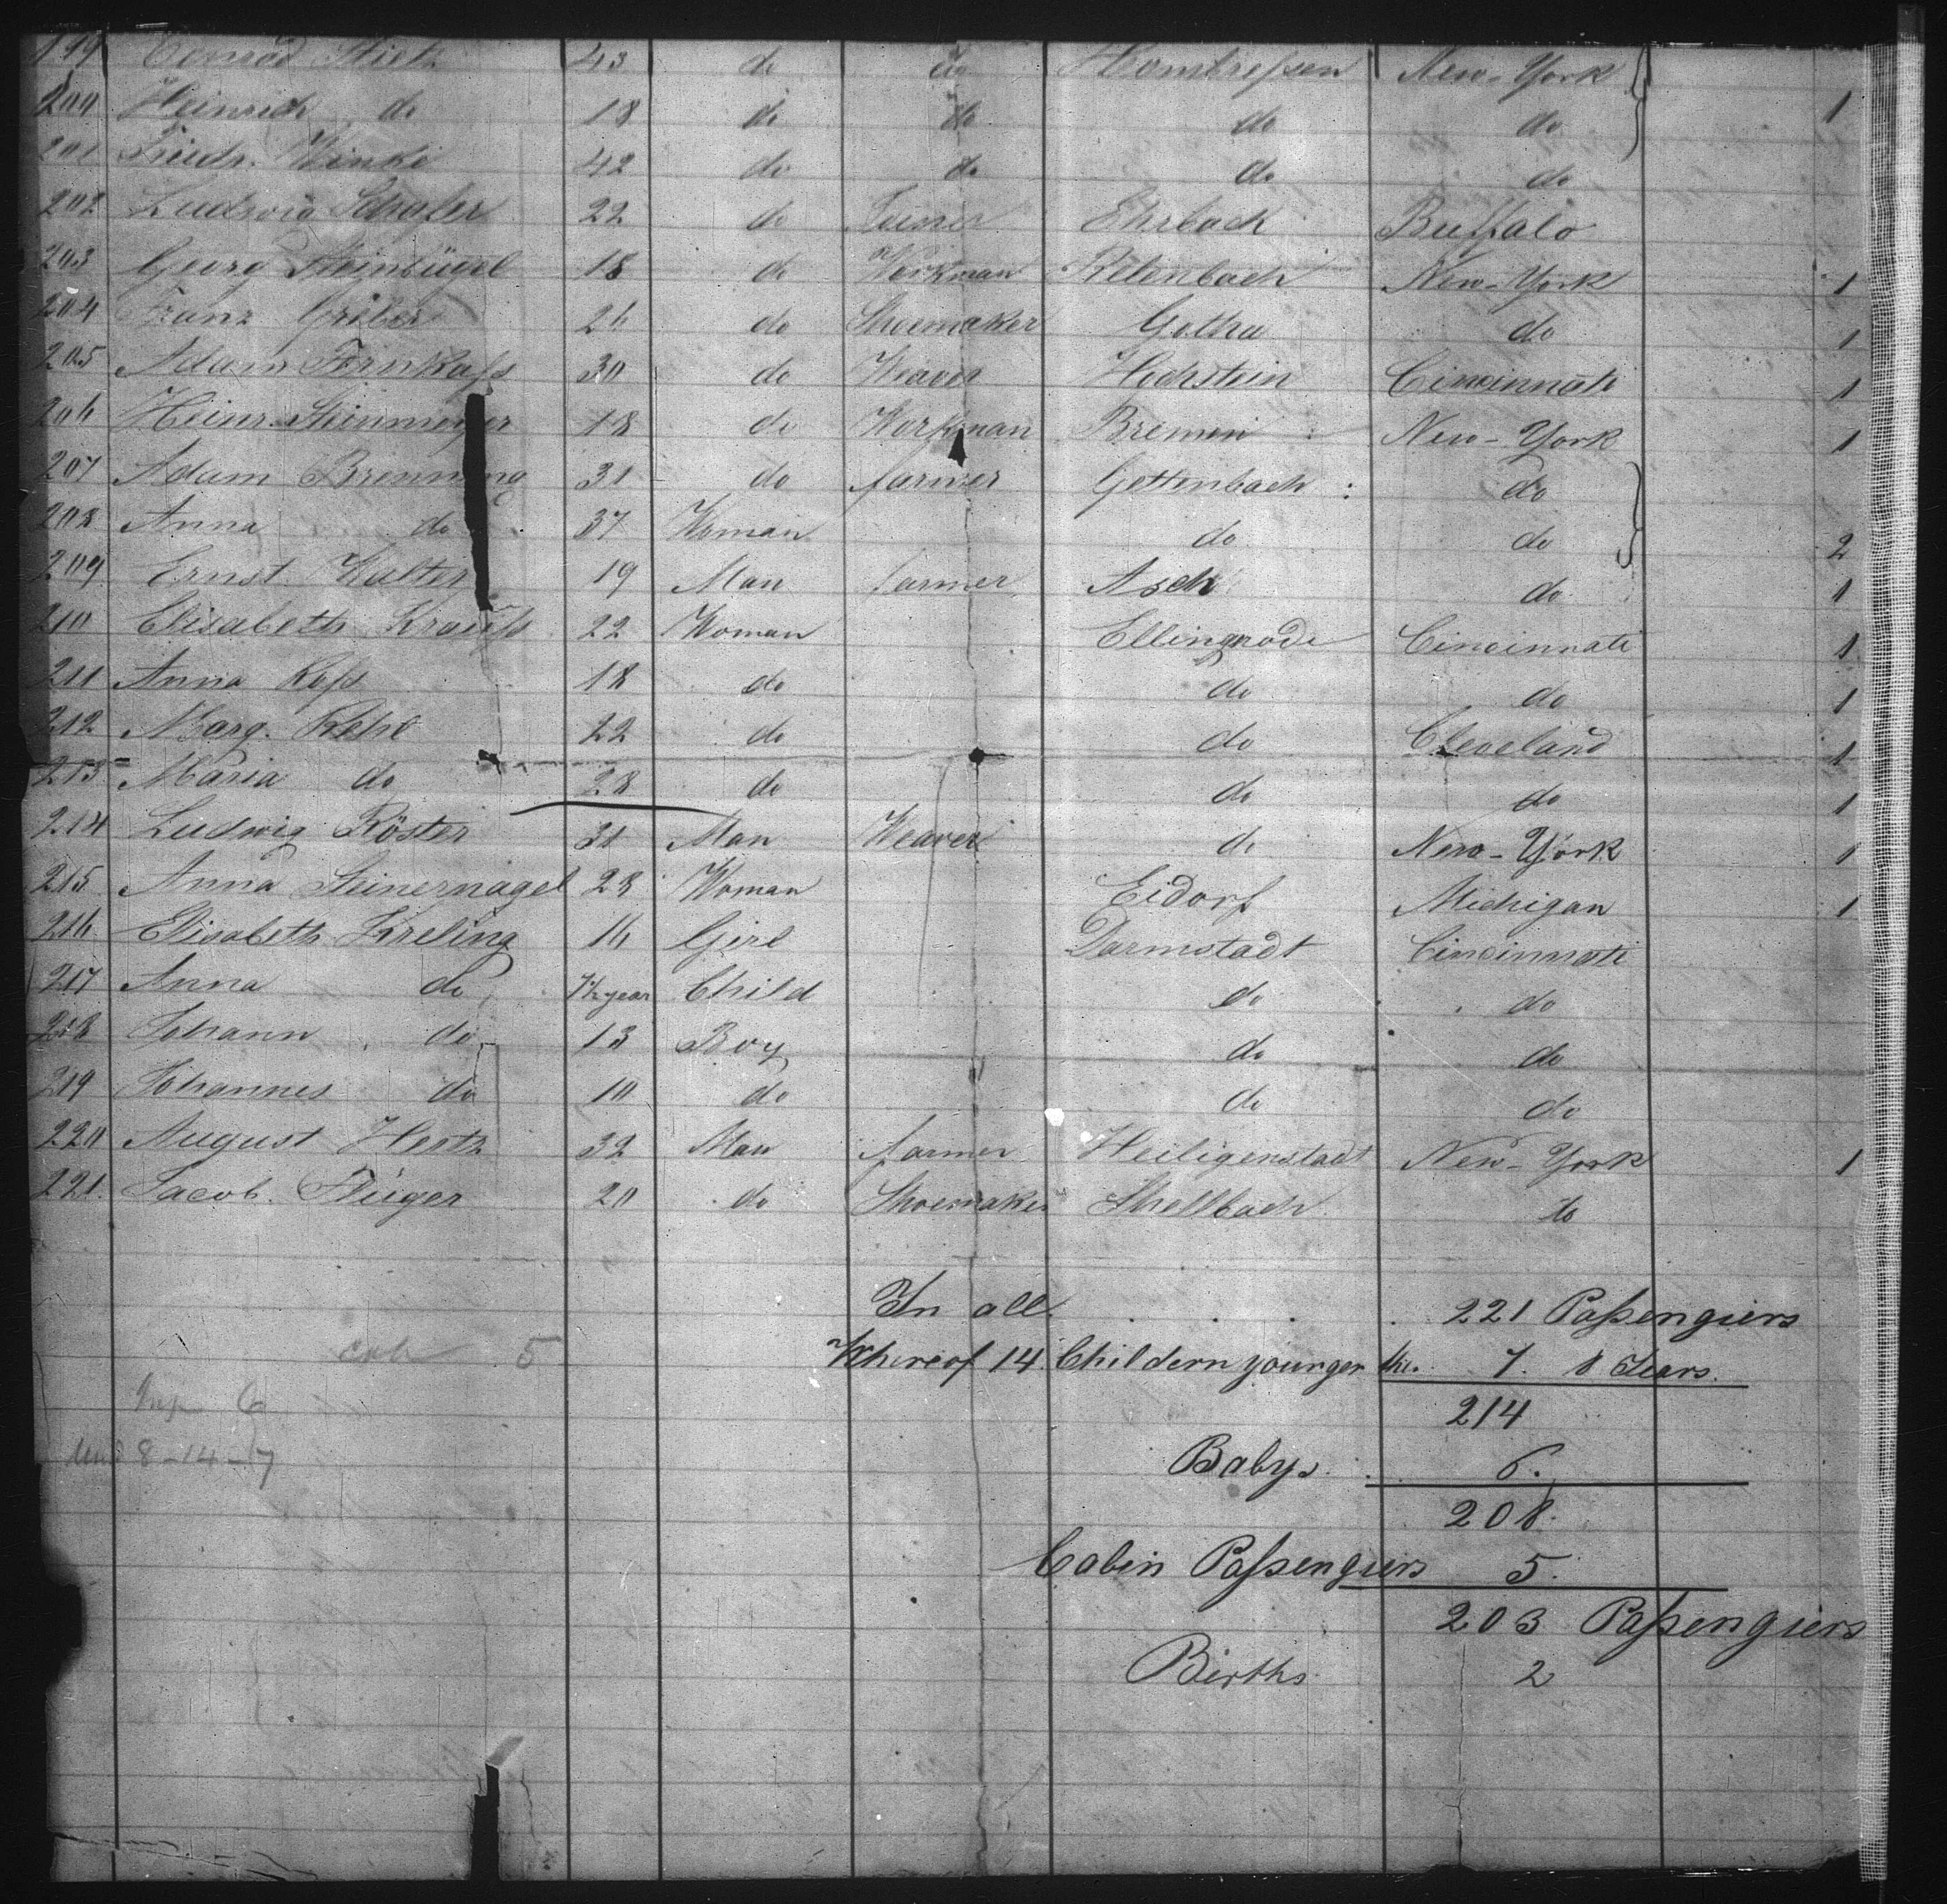 199 Conrad 43 do do Hombressen New-York
200 Heinrich do 18 do do do do 1
201 Friedr. Winke 42 do do do do
202 Ludwig Schafer 22 do Ehrbach Buffalo
203 Georg Steinbügel 18 do Workman New-York 1
204 Franz Griber 26 do Shoemaker Gotha do 1
205 Adam Fernkass 30 do Weaver Hochstein Cincinnati 1
206 Heinr. Steinmeyer 18 do Workman Bremen New-York 1
207 Adam Brenning 31 do farmer Gettenbach : do
208 Anna do 37 Woman do do 2
209 Ernst Walter 19 Man farmer Asch do 1
210 Elisabeth Krauss 22 Woman Ellingrode Cincinnati 1
211 Anna Koss 18 do do do 1
212 Marg. Kehl 22 do do Cleveland 1
213 Maria do 28 do do do 1
214 Ludwig Röster 31 Man Weaver do New-York 1
215 Anna Steinernagel 28 Woman Eidorf Michigan 1
216 Elisabeth Kreling 16 Girl Darmstadt Cincinnati
217 Anna do year Child do do
218 Johann do 13 Boy do do
219 Johannes do 10 do do do
220 August Hertz 32 Man farmer Heiligenstadt New-York 1
221. Jacob Flüger 20 do Shoemaker Shellbach do
In all . . . . 221 Passengiers
Whereof 14 Childern younger 7. 8 Years.
214
Babys . . 6.
208.
Cabin Passengiers 5.
203 Passengiers
Births 2
5
8-14-7